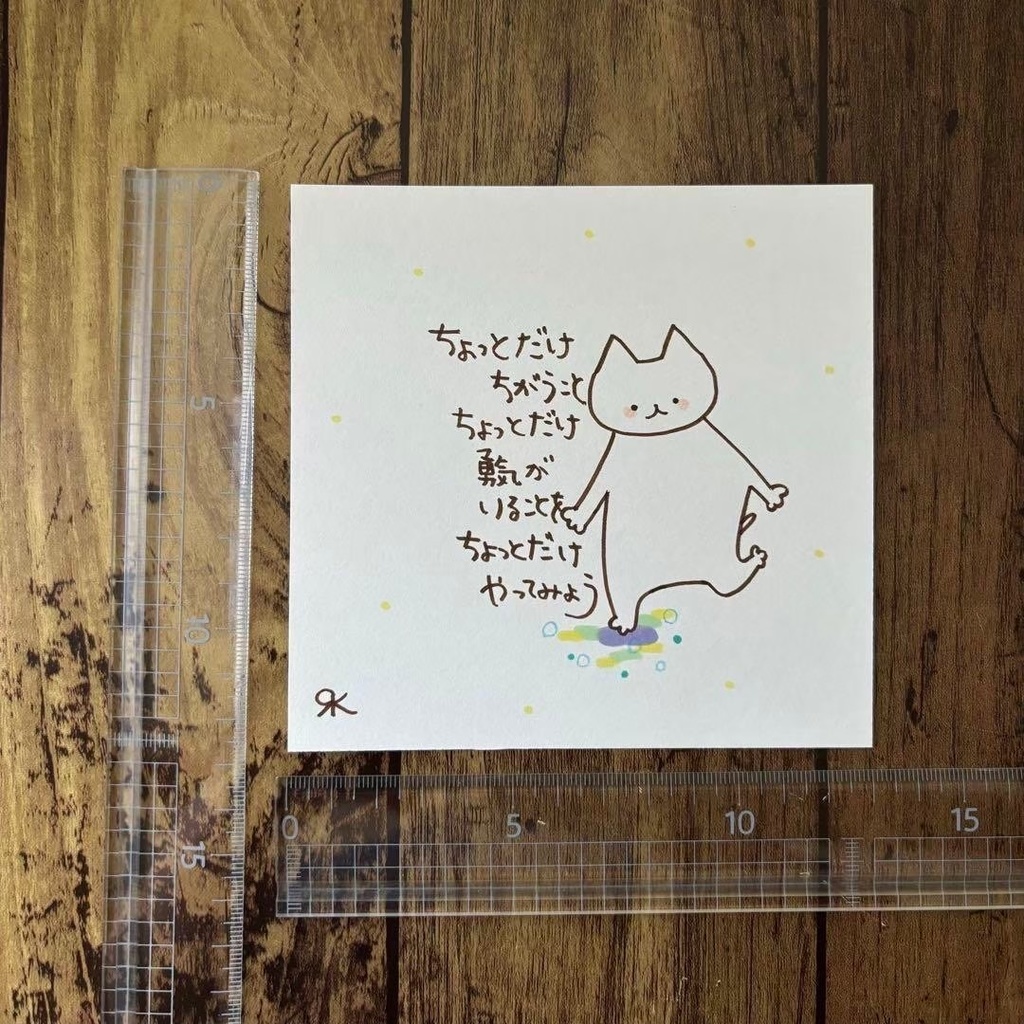 ちょっとだけ
ちがうこと
ちょっとだけ
勇気が
いることを
ちょっとだけ
やってみよう
RK
5
10
15
0 5 10 15